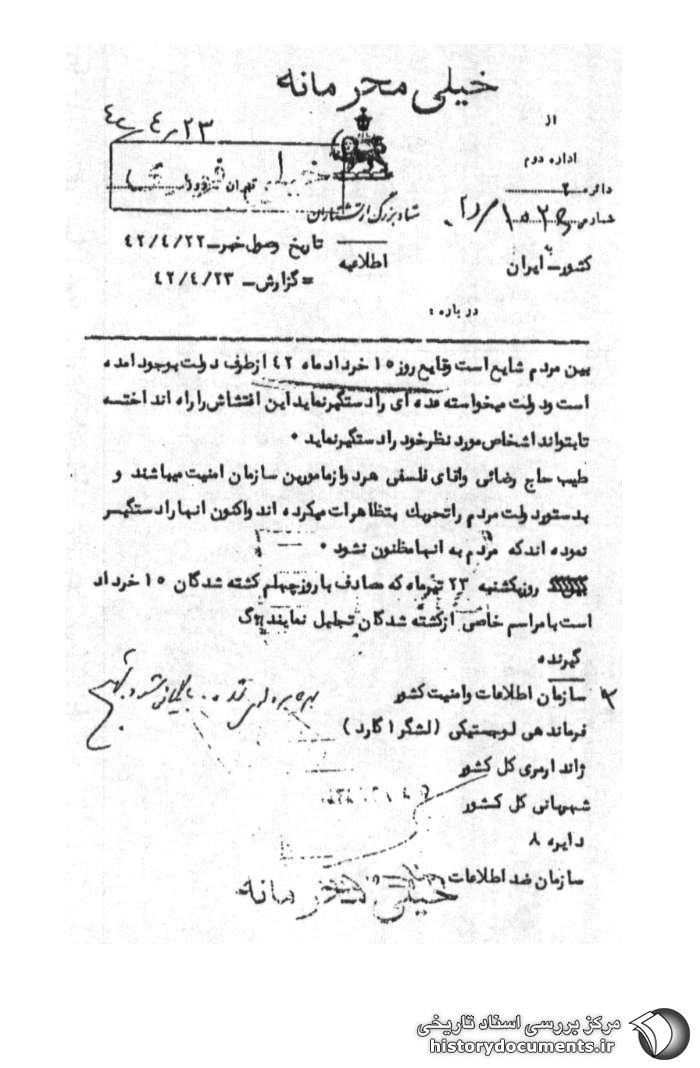 خیلی محرمانه
۴۲/۴/۲۳
از
اداره دوم
دائره ۲
شماره
تهران
ستاد بزرگ ارتشتاران
تاریخ وصول خبر ــ ۴۲/۴/۲۲
اطلاعیه
به
کشور ــ ایران
= گزارش ــ ۴۲/۴/۲۳
درباره :
بین مردم شایع است وقایع روز ۱۵ خرداد ماه ۴۲ از طرف دولت بوجود آمده
است و دولت میخواسته عده ای را دستگیر نماید این اغتشاش را راه انداخته
تا بتواند اشخاص مورد نظر خود را دستگیر نماید ۰
طیب حاج رضائی و آقای فلسفی هردو از مامورین سازمان امنیت میباشند و
بدستور دولت مردم را تحریک بتظاهرات میکرده اند و اکنون آنها را دستگیر
نموده اند که مردم به آنها مظنون نشود ۰
روز یکشنبه ۲۳ تیرماه که مصادف با روز چهلم کشته شدگان ۱۵ خرداد
است با مراسم خاصی از کشته شدگان تجلیل نمایند
گیرنده
سازمان اطلاعات و امنیت کشور
فرماندهی لوجستیکی (لشگر ۱ گارد)
ژاندارمری کل کشور
شهربانی کل کشور
دایره ۸
سازمان ضد اطلاعات
خیلی محرمانه
مرکز بررسی اسناد تاریخی
historydocuments.ir